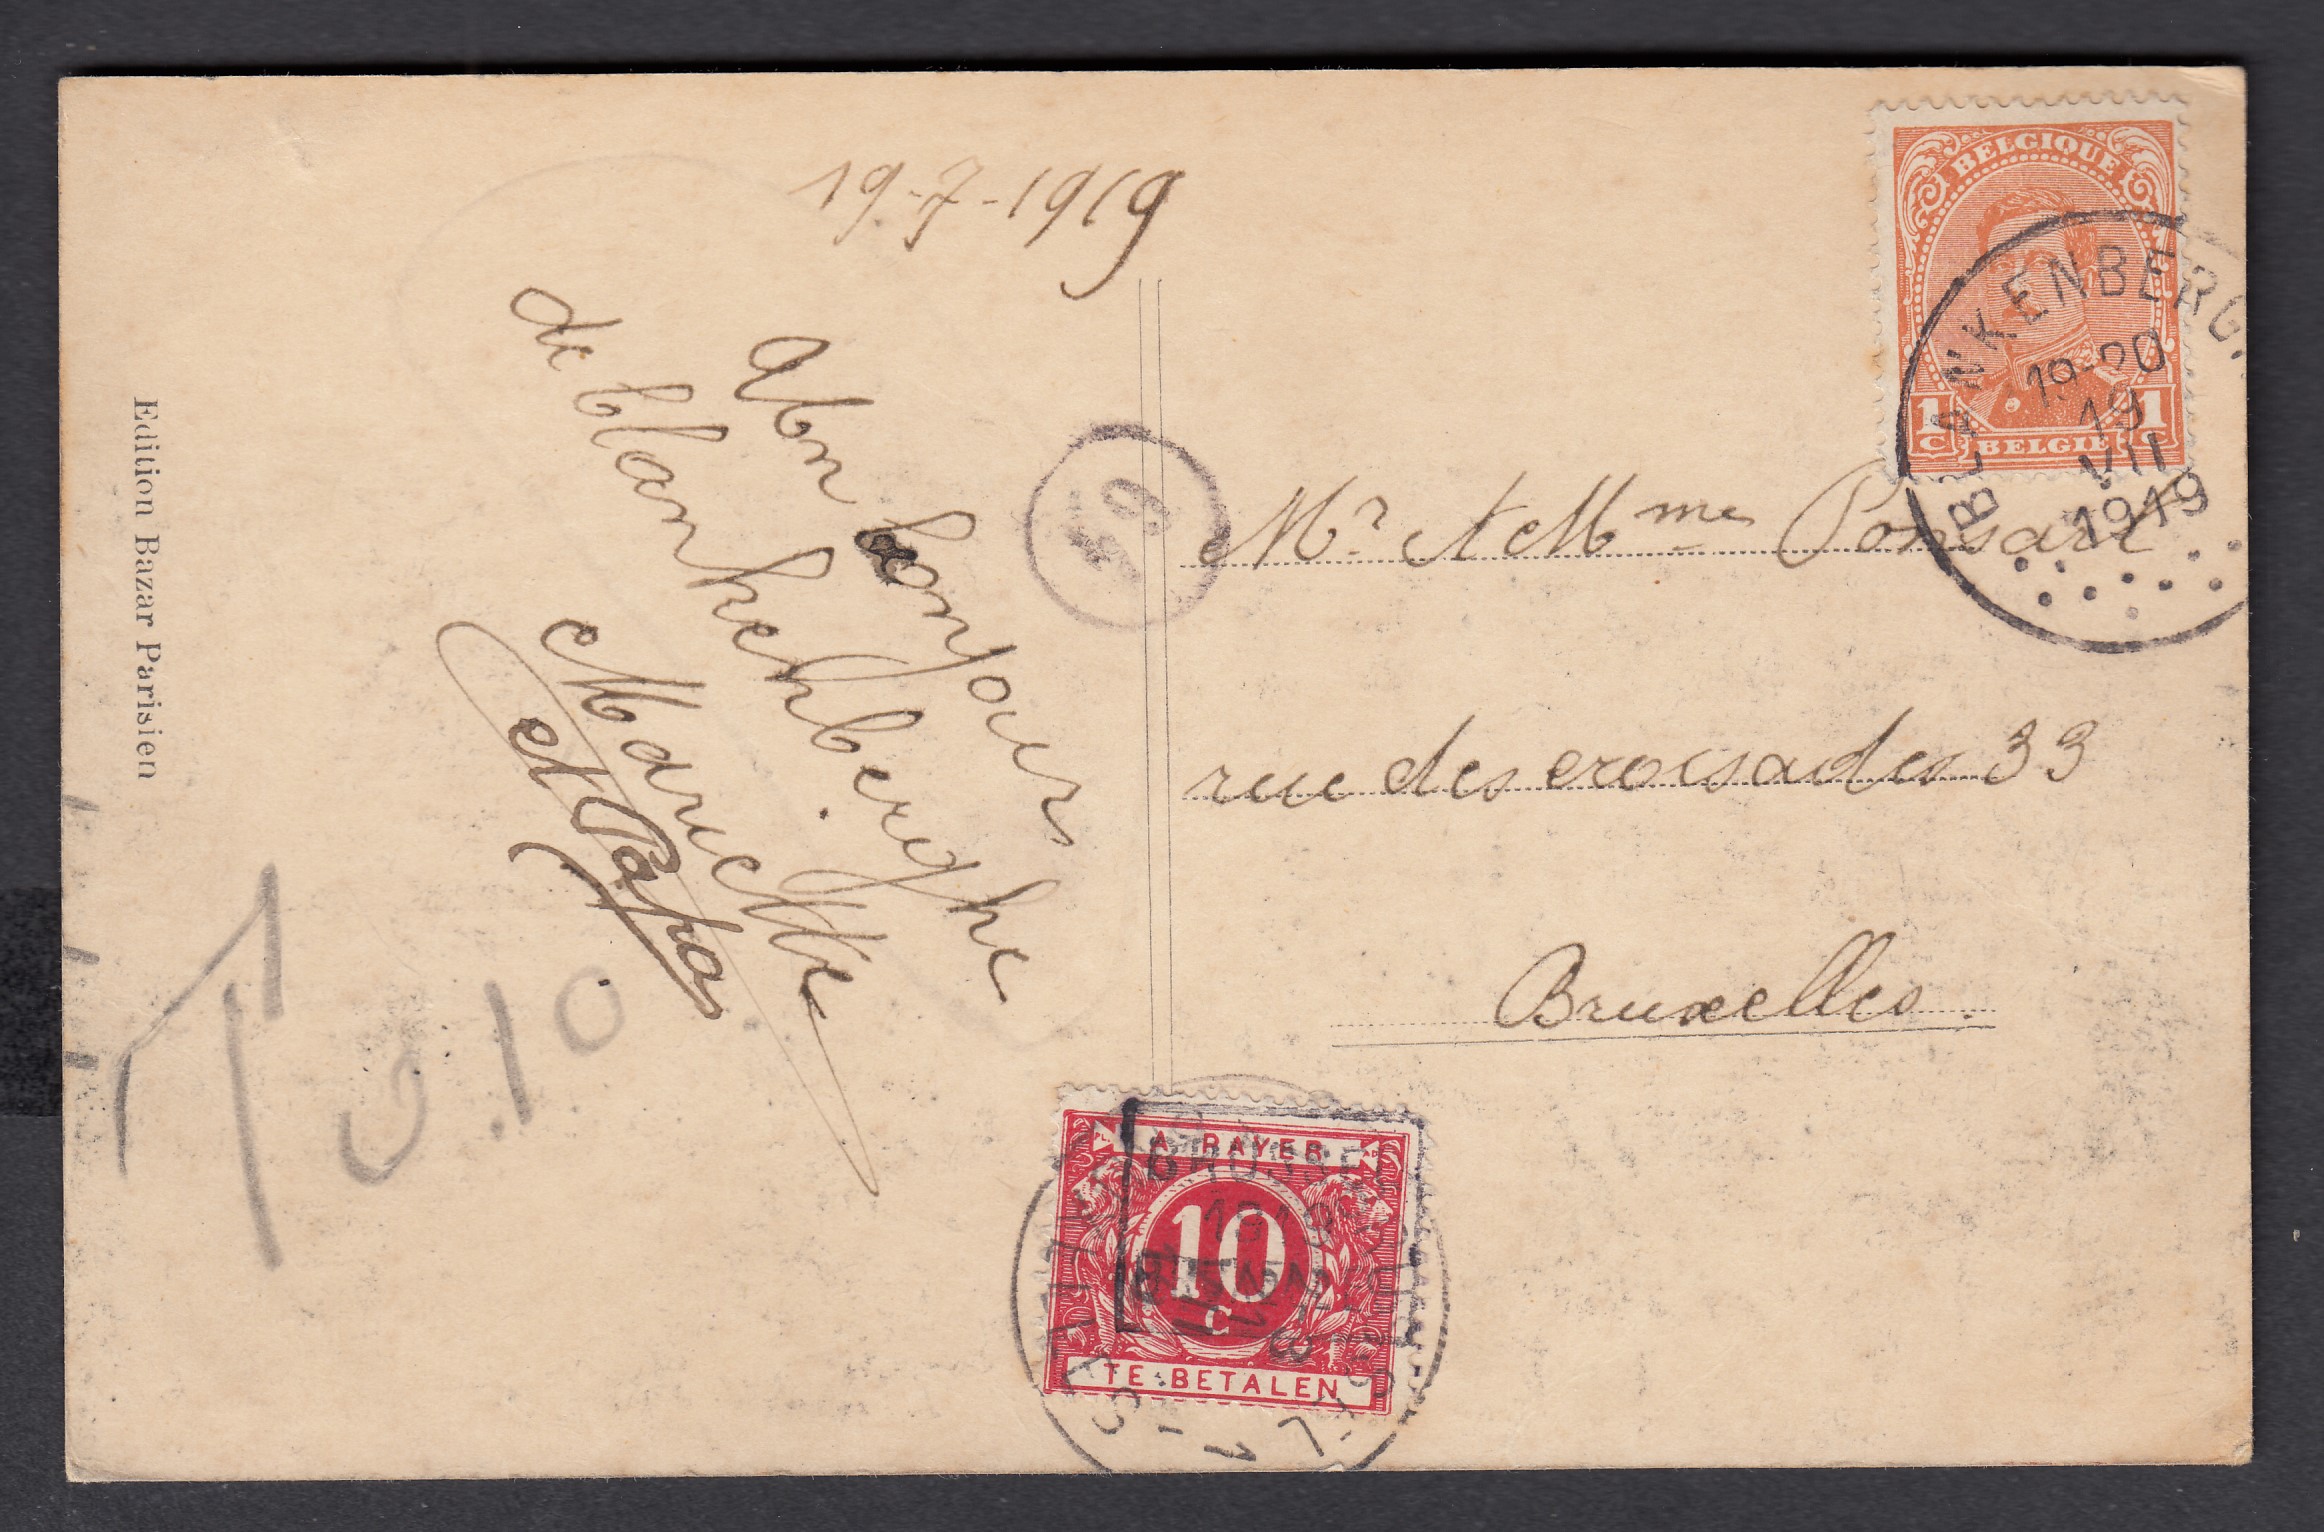 19-7-1919
BELGIQUE
1c BELGIE 1c
BLANKENBERG
19-20
19
VII
1919
Mr et Mme Ponsart
rue des croisades 33
Bruxelles.
Abn bonjour
de blankenberghe
Mariette
Edition Bazar Parisien
T 0.10
A PAYER
10
C
TE BETALEN
BRUSSEL
1919